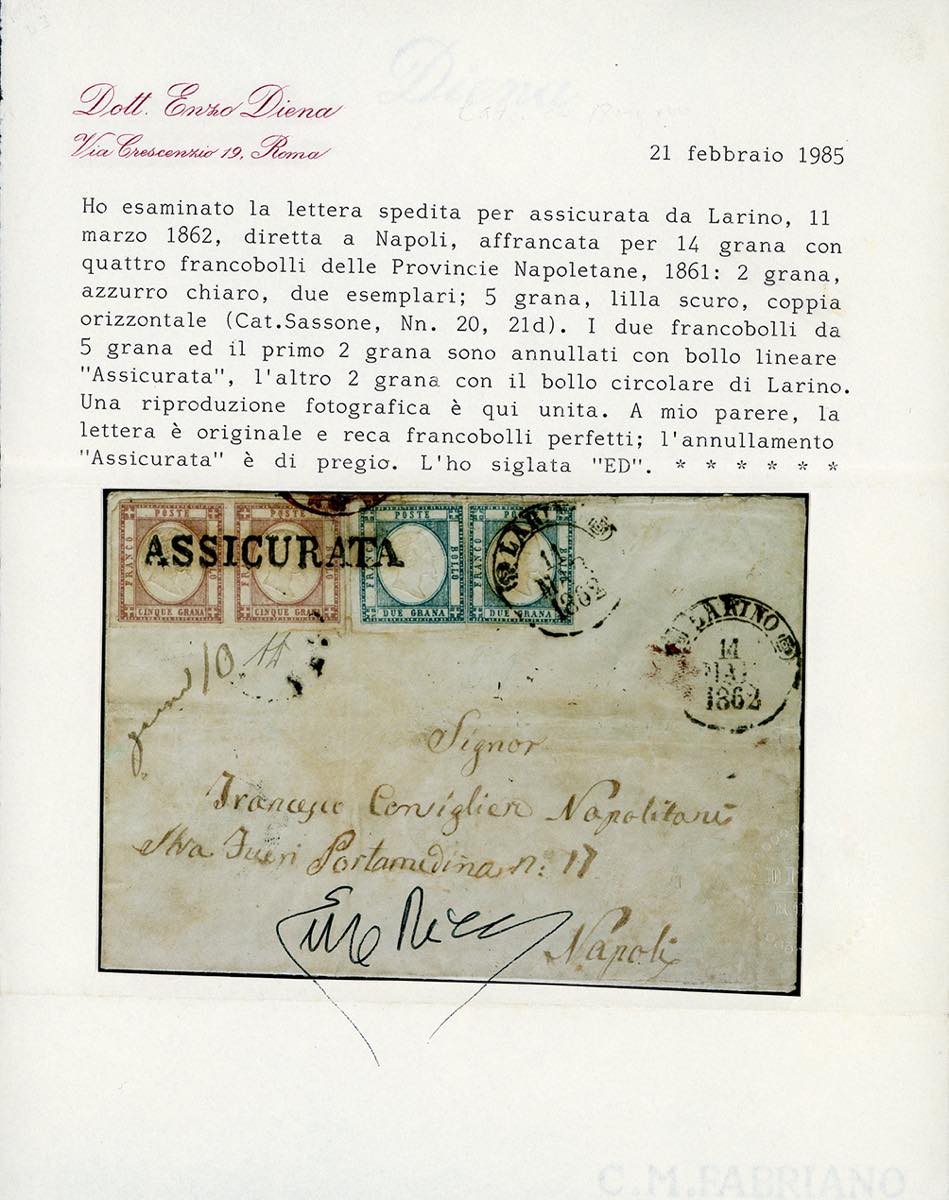 Dott. Enzo Diena
Via Crescenzio 19, Roma
21 febbraio 1985
Ho esaminato la lettera spedita per assicurata da Larino, 11
marzo 1862, diretta a Napoli, affrancata per 14 grana con
quattro francobolli delle Provincie Napoletane, 1861: 2 grana,
azzurro chiaro, due esemplari; 5 grana, lilla scuro, coppia
orizzontale (Cat.Sassone, Nn. 20, 21d). I due francobolli da
5 grana ed il primo 2 grana sono annullati con bollo lineare
"Assicurata", l'altro 2 grana con il bollo circolare di Larino.
Una riproduzione fotografica è qui unita. A mio parere, la
lettera è originale e reca francobolli perfetti; l'annullamento
"Assicurata" è di pregio. L'ho siglata "ED". * * * * * *
POSTE POSTE POSTE
FRANCO BOLLO FRANCO FRANCO BOLLO
ASSICURATA
CINQUE GRANA CINQUE GRANA DUE GRANA DUE GRANA
LARI
11
1862
LARINO
11
MAR
1862
10
Signor
Francesco Consigliere Napolitani
Fuori Portamedina n: 17
Napoli
C.M.FABRIANO